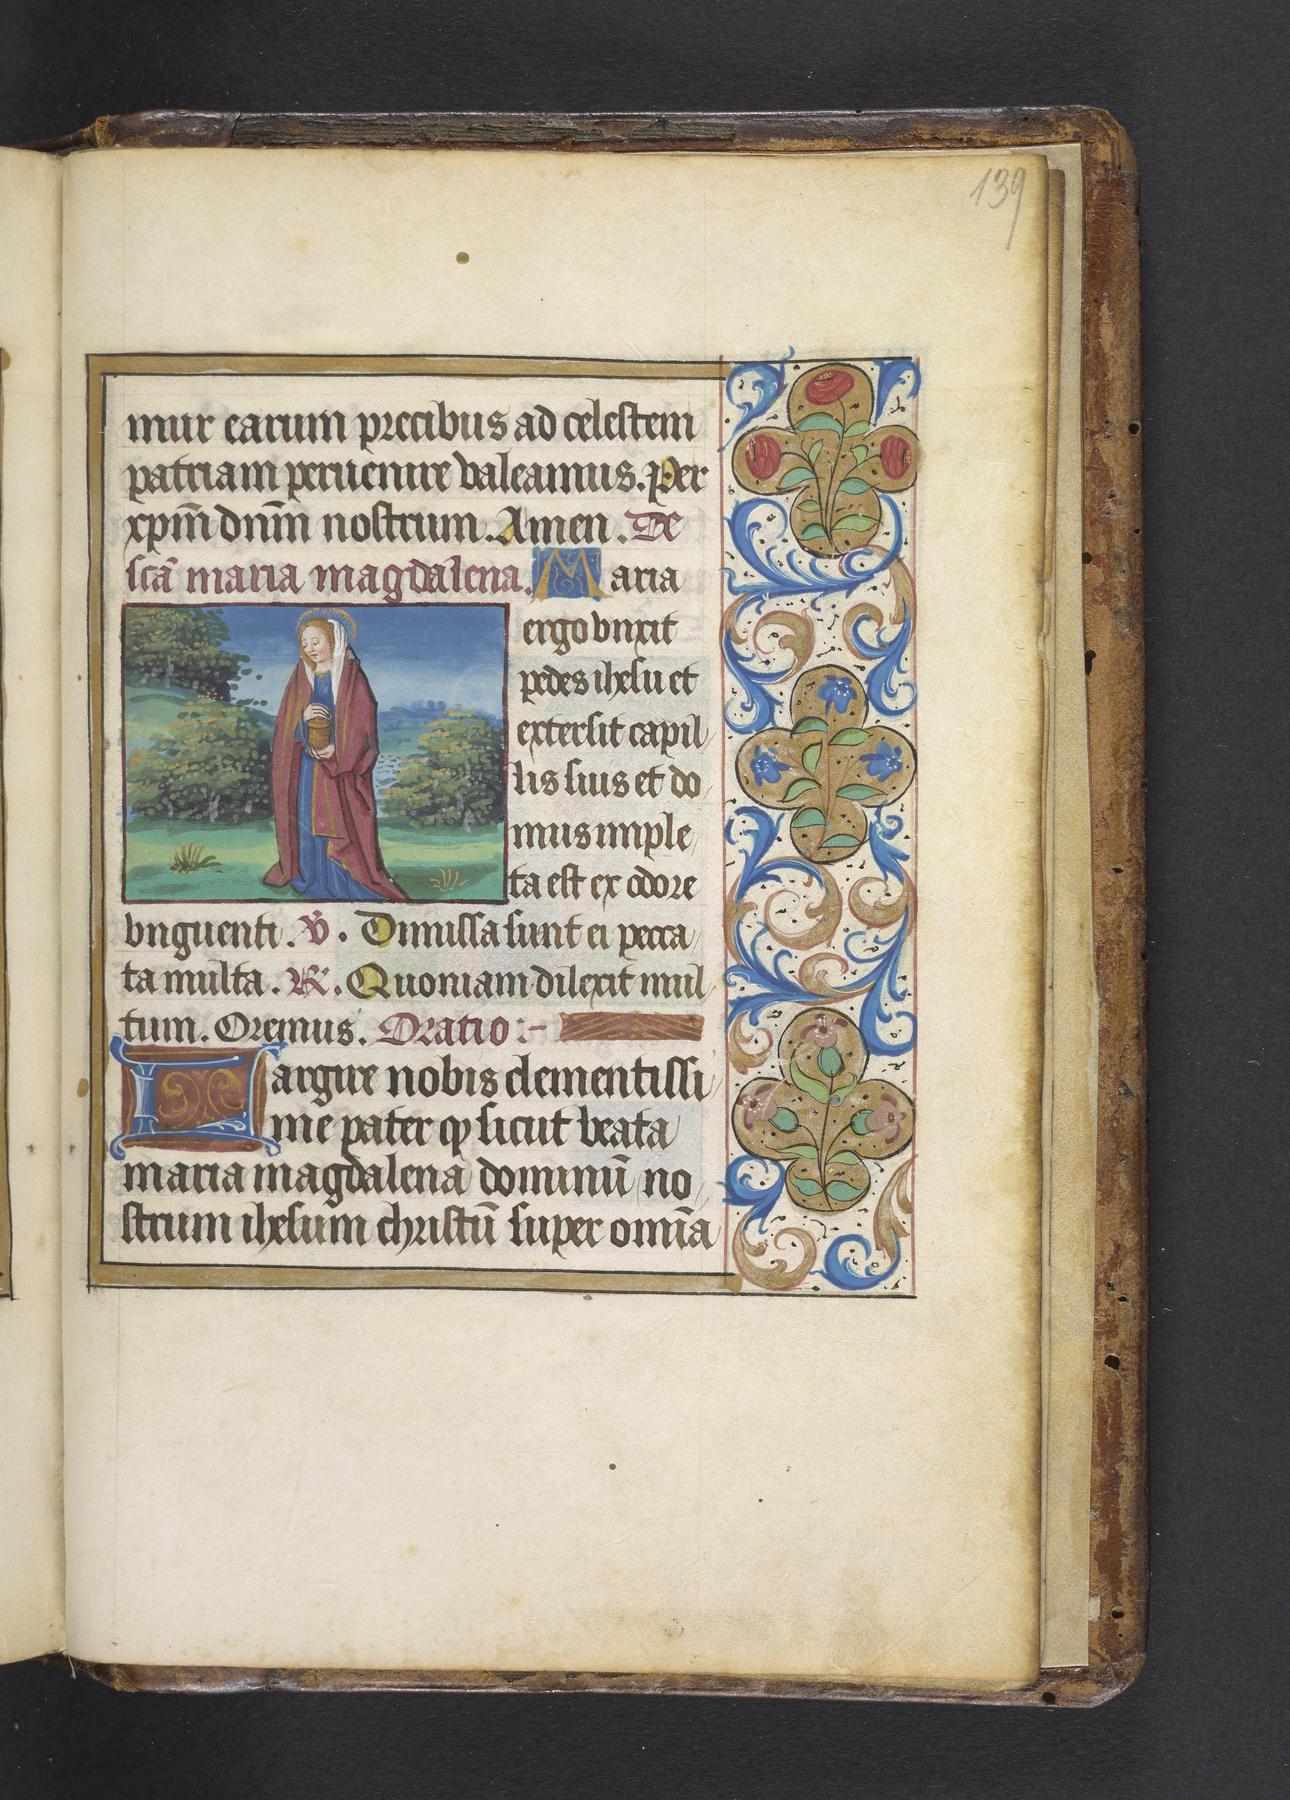 139
mur earum precibus ad celestem
patriam peruenire valeamus. Per
xpm̄ dnm̄ nostrum. Amen. De
scā maria magdalena. Maria
ergo vnxit
pedes ihesu et
extersit capil
lis suis et do
mus imple
ta est ex odore
vnguenti. V̄. Dimissa sunt ei pecca
ta multa. R̄. Quoniam dilexit mul
tum. Oremus. Oratio:-
Largire nobis clementissi
me pater ꝙ sicut beata
maria magdalena dominū no
strum ihesum christū super omīa